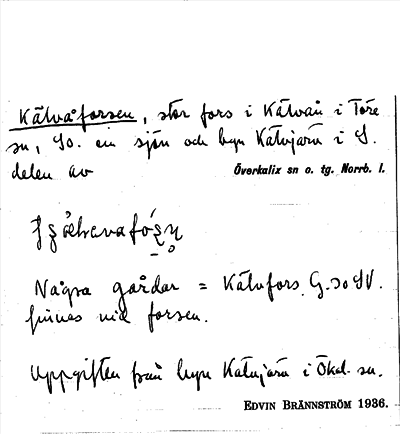 Kälvåforsen, stor fors i Kälvån i Töre
sn, SO. om sjön och byn Kälvjärv i S.
delen av Överkalix sn o. tg. Norrb. l.
Några gårdar = Kälvfors, G.
finnes vid forsen.
Uppgiften från byn Kälvjärv i Ökal. sn.
EDVIN BRÄNNSTRÖM 1936.